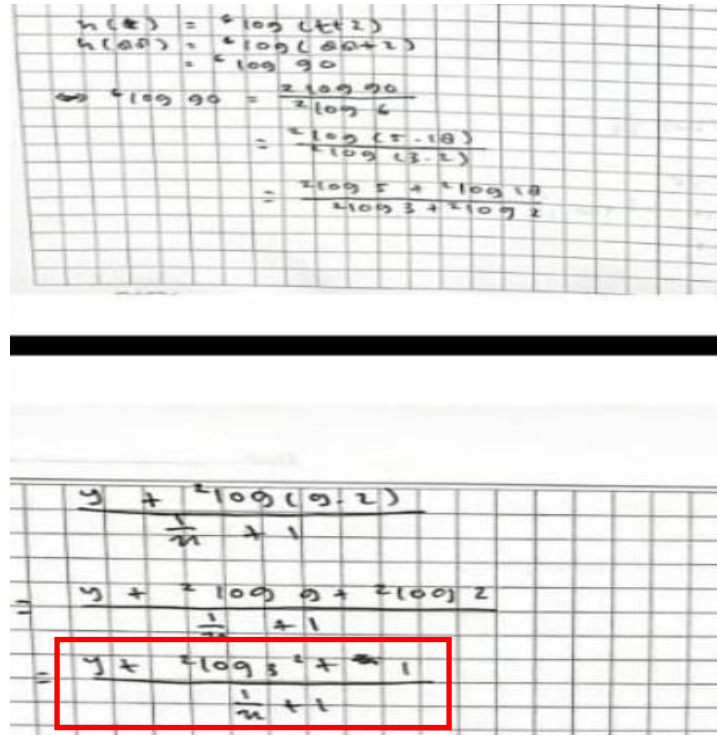 h(t) = ⁶log (t+2)
h(88) = ⁶log (88+2)
= ⁶log 90
⇔ ⁶log 90 = ²log 90 / ²log 6
= ²log (5.18) / ²log (3.2)
= ²log 5 + ²log 18 / ²log 3 + ²log 2
y + ²log (9.2) / 1/x + 1
= y + ²log 9 + ²log 2 / 1/x + 1
= y + ²log 3² + 1 / 1/x + 1